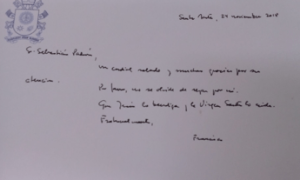 Santa Marta, 27 noviembre 2018
S. Sebastián
Un cordial saludo y muchas gracias por su
atención.
Por favor, no se olvide de rezar por mí.
Que Jesús lo bendiga y la Virgen Santa lo cuide.
Fraternalmente,
Francisco